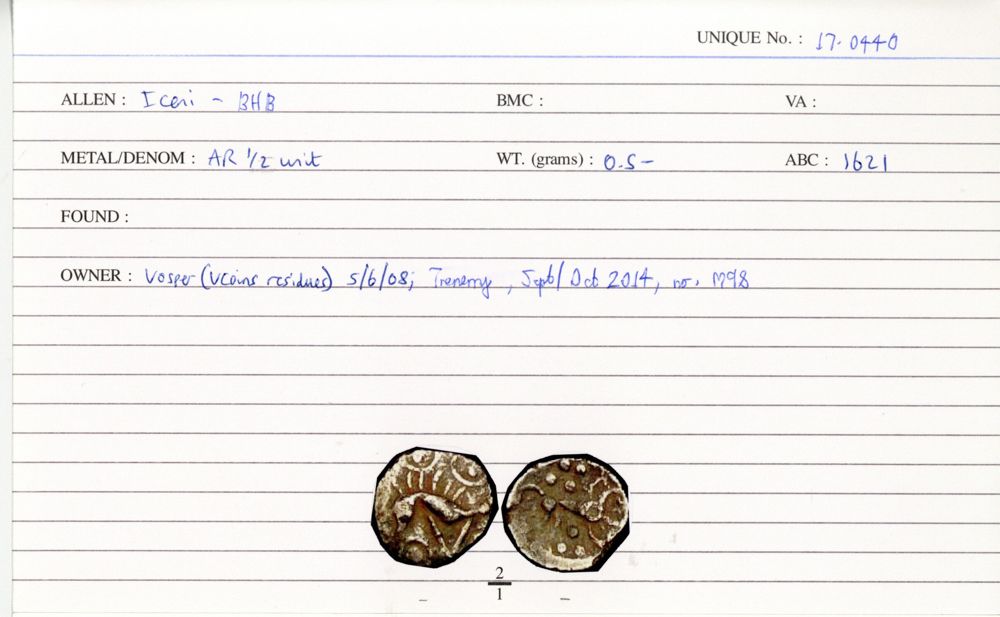 UNIQUE No. : 17.0440
ALLEN : Iceni - BHB BMC : VA :
METAL/DENOM : AR 1/2 unit WT. (grams) : 0.5- ABC : 1621
FOUND :
OWNER : Vosper (Vcoins residues) 5/6/08; Trenerry, Sept/Oct 2014, no. M98
2
1